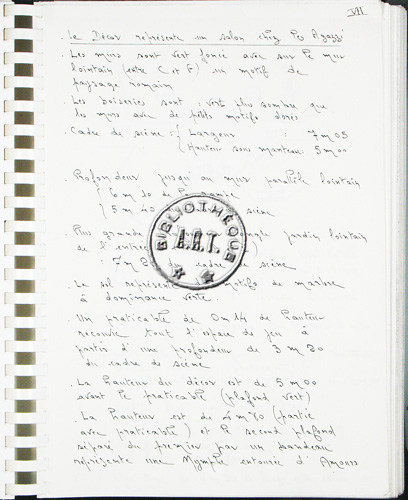 VII
. Le Décor représente un salon chez les Agazzi
. Les murs sont vert foncé avec sur le mur
lointain (entre C et F) un motif de
paysage romain
. Les boiseries sont : vert plus sombre que
les murs avec de petits motifs dorés
. Cadre de scène : { Largeur : 7 m 05
Hauteur sous manteau : 5 m 00
. Profondeur jusqu'au mur parallèle lointain
{ 6 m 10 de la rampe
{ 5 m 40 scène
Plus grande angle jardin lointain
de l'entrée
: 7 m 2 du cadre de scène
BIBLIOTHÈQUE
A.R.T.
. Le sol représente motifs de marbre
à dominance verte.
. Un praticable de 0 m 14 de hauteur
recouvre tout l'espace de jeu à
partir d'une profondeur de 3 m 20
du cadre de scène
. La hauteur du décor est de 5 m 00
avant le praticable (plafond vert)
La hauteur est de 4 m 70 (partie
avec praticable) et le second plafond
séparé du premier par un bandeau
représente une Nymphe entourée d'Amours